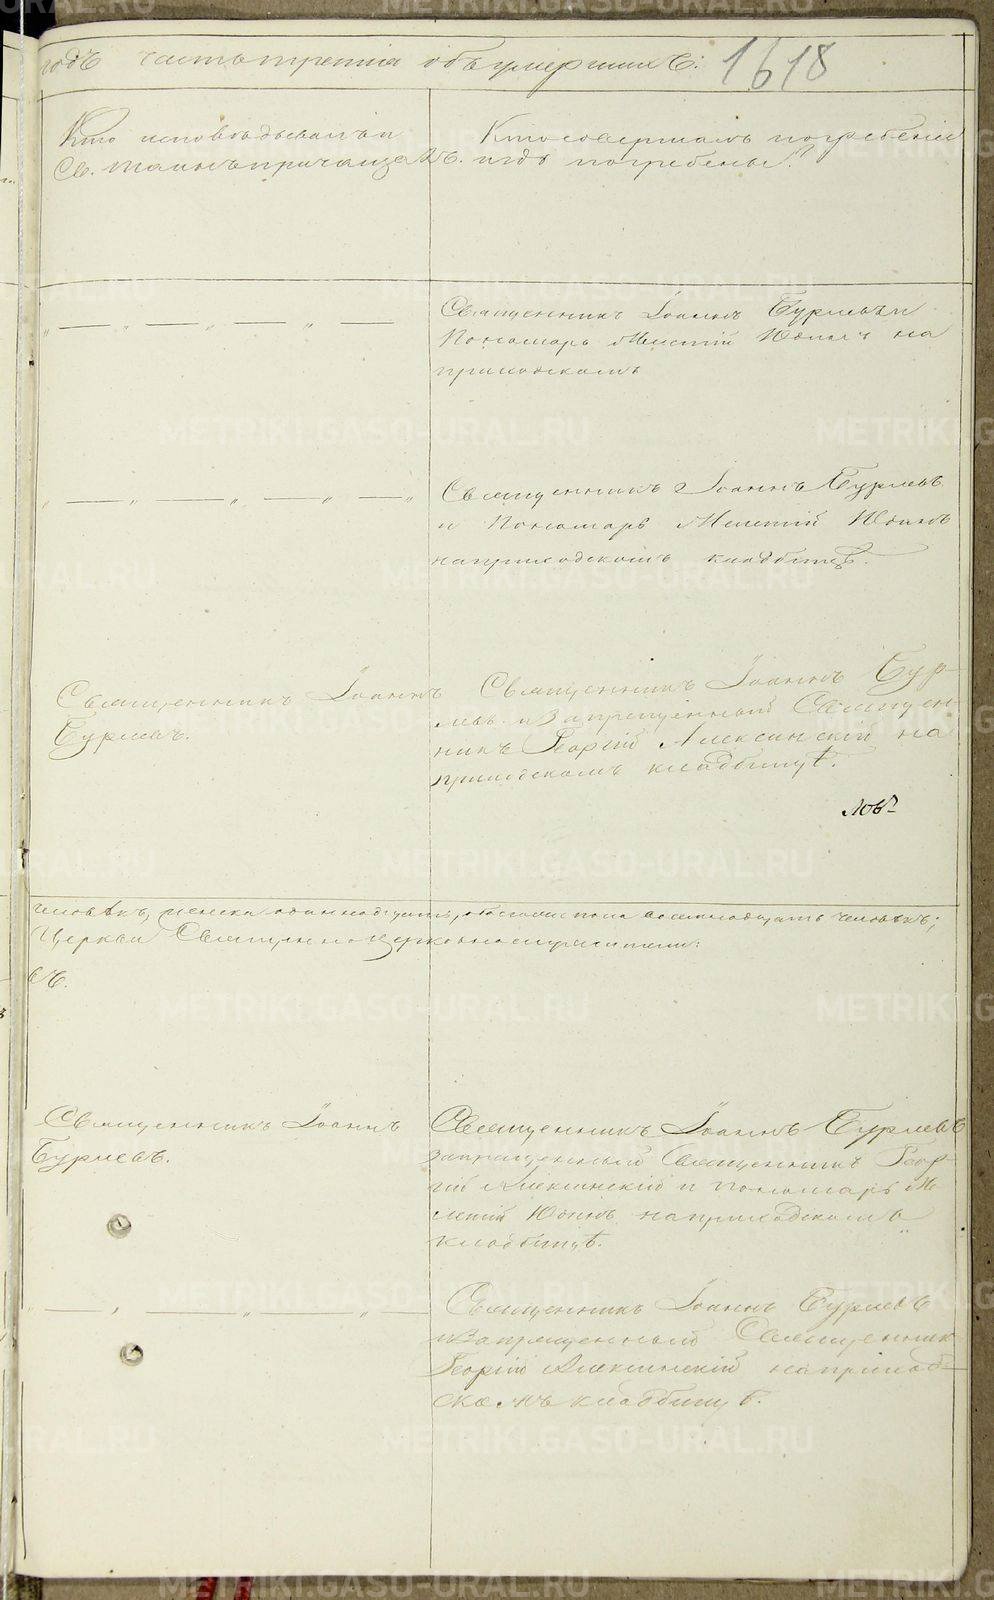 годъ часть третiя объ умершихъ:
1618
Кто исповѣдывалъ и
Св. таинъ причащалъ.
Кто совершалъ погребенiе
и гдѣ погребены?
Священникъ Iоаннъ Бурлевъ и
Пономарь Мелетiй Юдинъ на
приходскомъ
Священникъ Iоаннъ Бурлевъ
и Пономарь Мелетiй Юдинъ
на приходскомъ кладбищѣ.
Священникъ Iоаннъ
Бурлевъ.
Священникъ Iоаннъ Бур-
левъ и Запрещенный Священ-
никъ Георгiй Алексинскiй на
приходскомъ кладбищѣ.
человѣкъ, женска одиннадцать, обоего пола восемнадцать человѣкъ;
Церкви Священно церковнослужители:
въ.
Священникъ Iоаннъ
Бурлевъ.
Священникъ Iоаннъ Бурлевъ
запрещенный Священникъ Геор-
гiй Алексинскiй и пономарь Ме
летiй Юдинъ на приходскомъ
кладбищѣ.
Священникъ Iоаннъ Бурлевъ
и Запрещенный Священникъ
Георгiй Алексинскiй на приход-
скомъ кладбищѣ.
METRIKI.GASO-URAL.RU